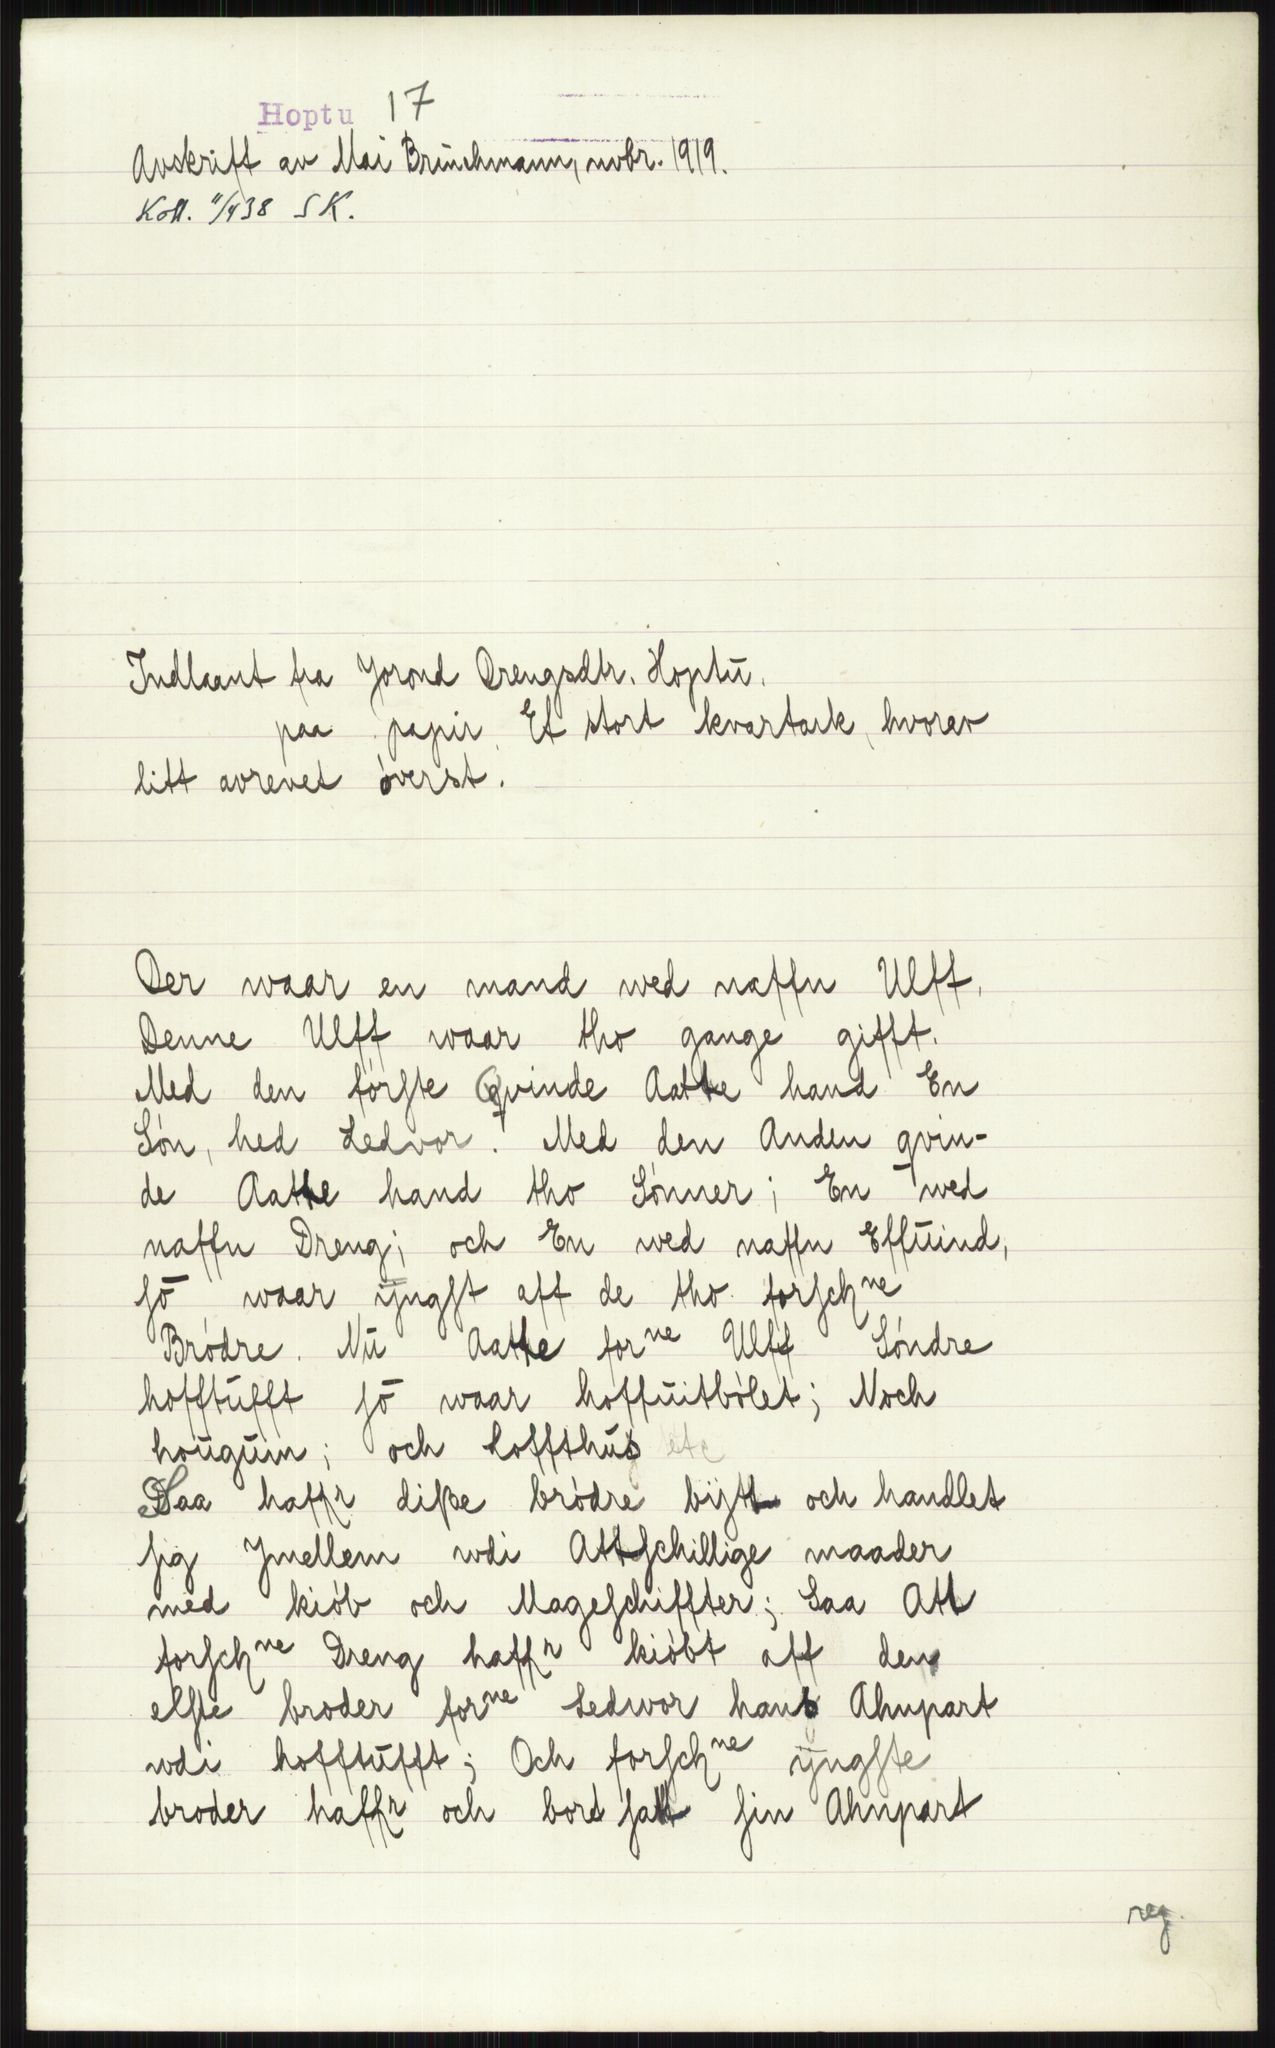 Hoptu 17
Avskrift av Mai Bruchmann, novbr. 1919.
Koll. 11/4 38 S K.
Indlaant fra Jorond Drengsdtr. Hoptū.
paa papir. Et stort kvartark, hvorav
litt avrevet øverst.
Der waar en mand wed naffn Ulff.
Denne Ulff waar tho gange gifft.
Med den første Qvinde Aatte hand En
Søn, hed Ledvor. Med den Anden qvin-
de Aatte hand tho Sønner; En wed
naffn Dreng; och En wed naffn Effūind,
sō waar ÿngst aff de tho forschne
Brødre. Nū Aatte forne Ulff Søndre
hofftūfft sō waar hoffūitbølet; Noch
hoūgūm; och Loffthūs etc
Saa haffr diße brødre bÿtt och handlet
sig Jmellem wdi Attschillige maader
med kiøb och Mageschiffter; Saa Att
forschne Dreng haffr kiøbt aff den
elste broder forne Ledwor hans Ahnpart
wdi hofftūfft; Och forschne ÿngste
broder haffr och bort satt sin Ahnpart
reg.